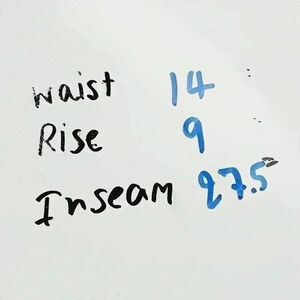 waist 14
Rise 9
Inseam 27.5